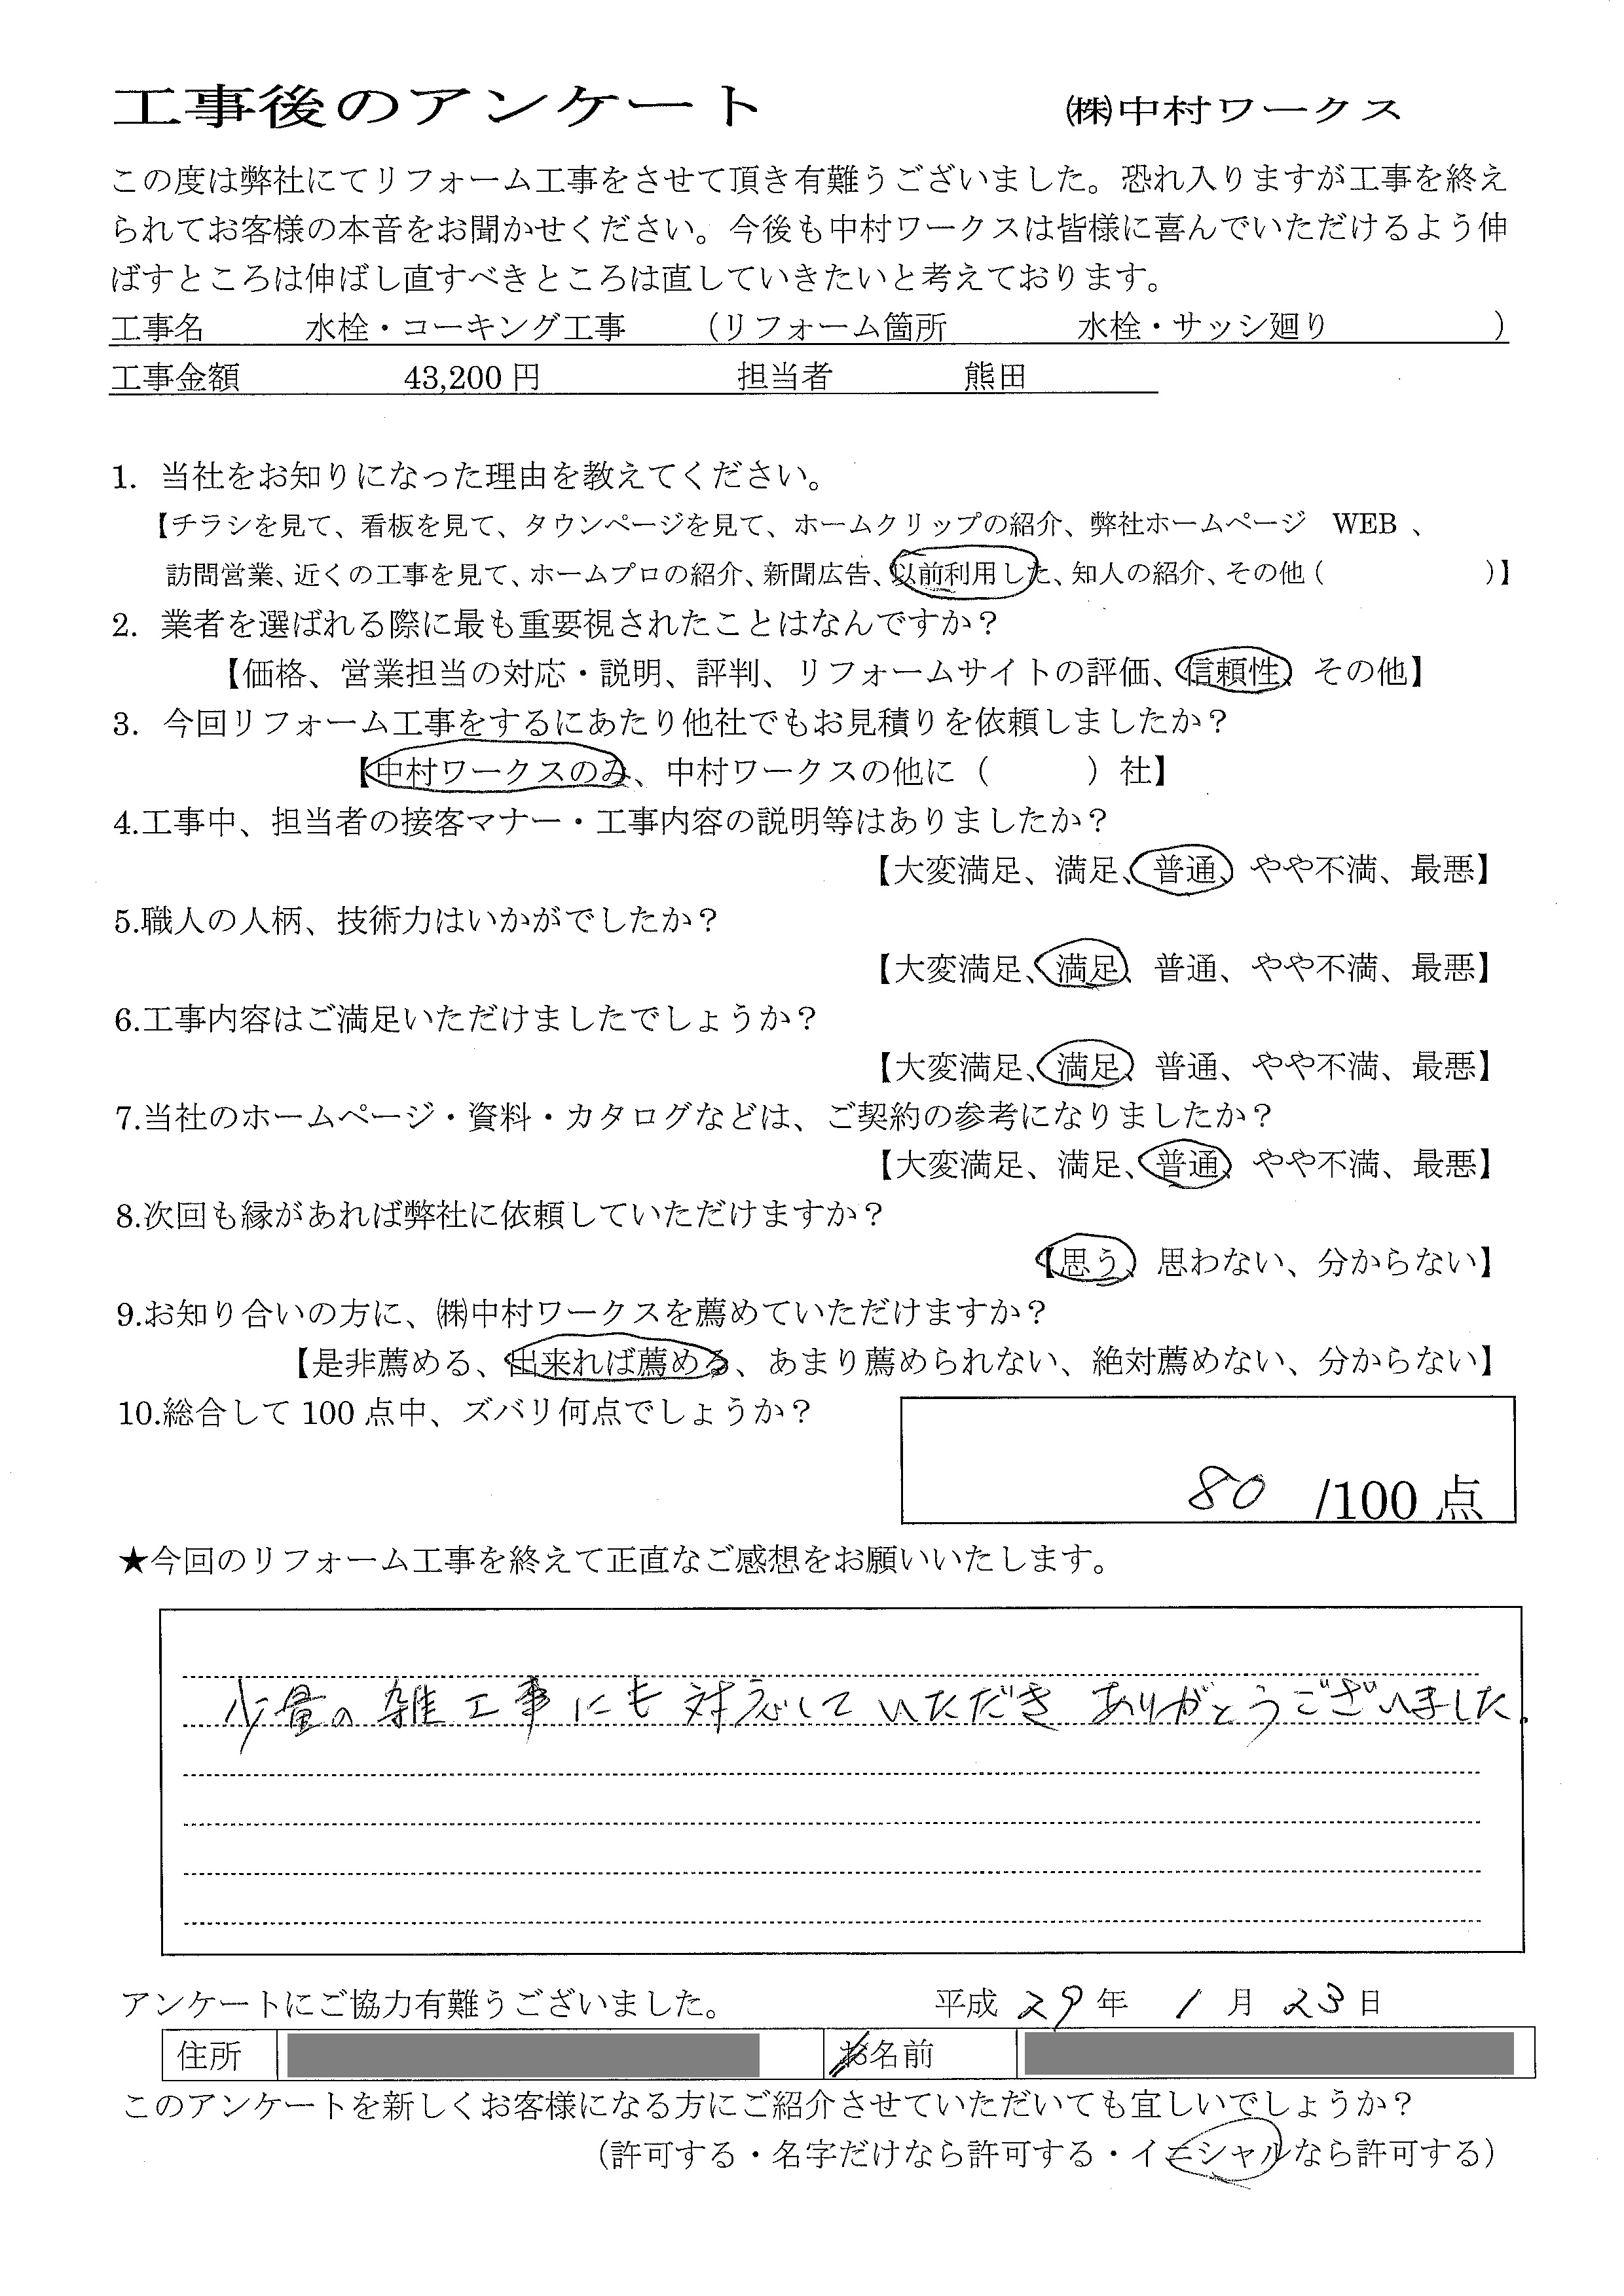 工事後のアンケート ㈱中村ワークス
この度は弊社にてリフォーム工事をさせて頂き有難うございました。恐れ入りますが工事を終え
られてお客様の本音をお聞かせください。今後も中村ワークスは皆様に喜んでいただけるよう伸
ばすところは伸ばし直すべきところは直していきたいと考えております。
工事名 水栓・コーキング工事 (リフォーム箇所 水栓・サッシ廻り )
工事金額 43,200円 担当者 熊田
1. 当社をお知りになった理由を教えてください。
【チラシを見て、看板を見て、タウンページを見て、ホームクリップの紹介、弊社ホームページ WEB 、
訪問営業、近くの工事を見て、ホームプロの紹介、新聞広告、以前利用した、知人の紹介、その他( )】
2. 業者を選ばれる際に最も重要視されたことはなんですか?
【価格、営業担当の対応・説明、評判、リフォームサイトの評価、信頼性、その他】
3. 今回リフォーム工事をするにあたり他社でもお見積りを依頼しましたか?
【中村ワークスのみ、中村ワークスの他に( )社】
4.工事中、担当者の接客マナー・工事内容の説明等はありましたか?
【大変満足、満足、普通、やや不満、最悪】
5.職人の人柄、技術力はいかがでしたか?
【大変満足、満足、普通、やや不満、最悪】
6.工事内容はご満足いただけましたでしょうか?
【大変満足、満足、普通、やや不満、最悪】
7.当社のホームページ・資料・カタログなどは、ご契約の参考になりましたか?
【大変満足、満足、普通、やや不満、最悪】
8.次回も縁があれば弊社に依頼していただけますか?
【思う、思わない、分からない】
9.お知り合いの方に、㈱中村ワークスを薦めていただけますか?
【是非薦める、出来れば薦める、あまり薦められない、絶対薦めない、分からない】
10.総合して100点中、ズバリ何点でしょうか?
80 /100点
★今回のリフォーム工事を終えて正直なご感想をお願いいたします。
少量の雑工事にも対応していただきありがとうございました.
アンケートにご協力有難うございました。 平成 29年 1月 23日
住所 お名前
このアンケートを新しくお客様になる方にご紹介させていただいても宜しいでしょうか?
(許可する・名字だけなら許可する・イニシャルなら許可する)